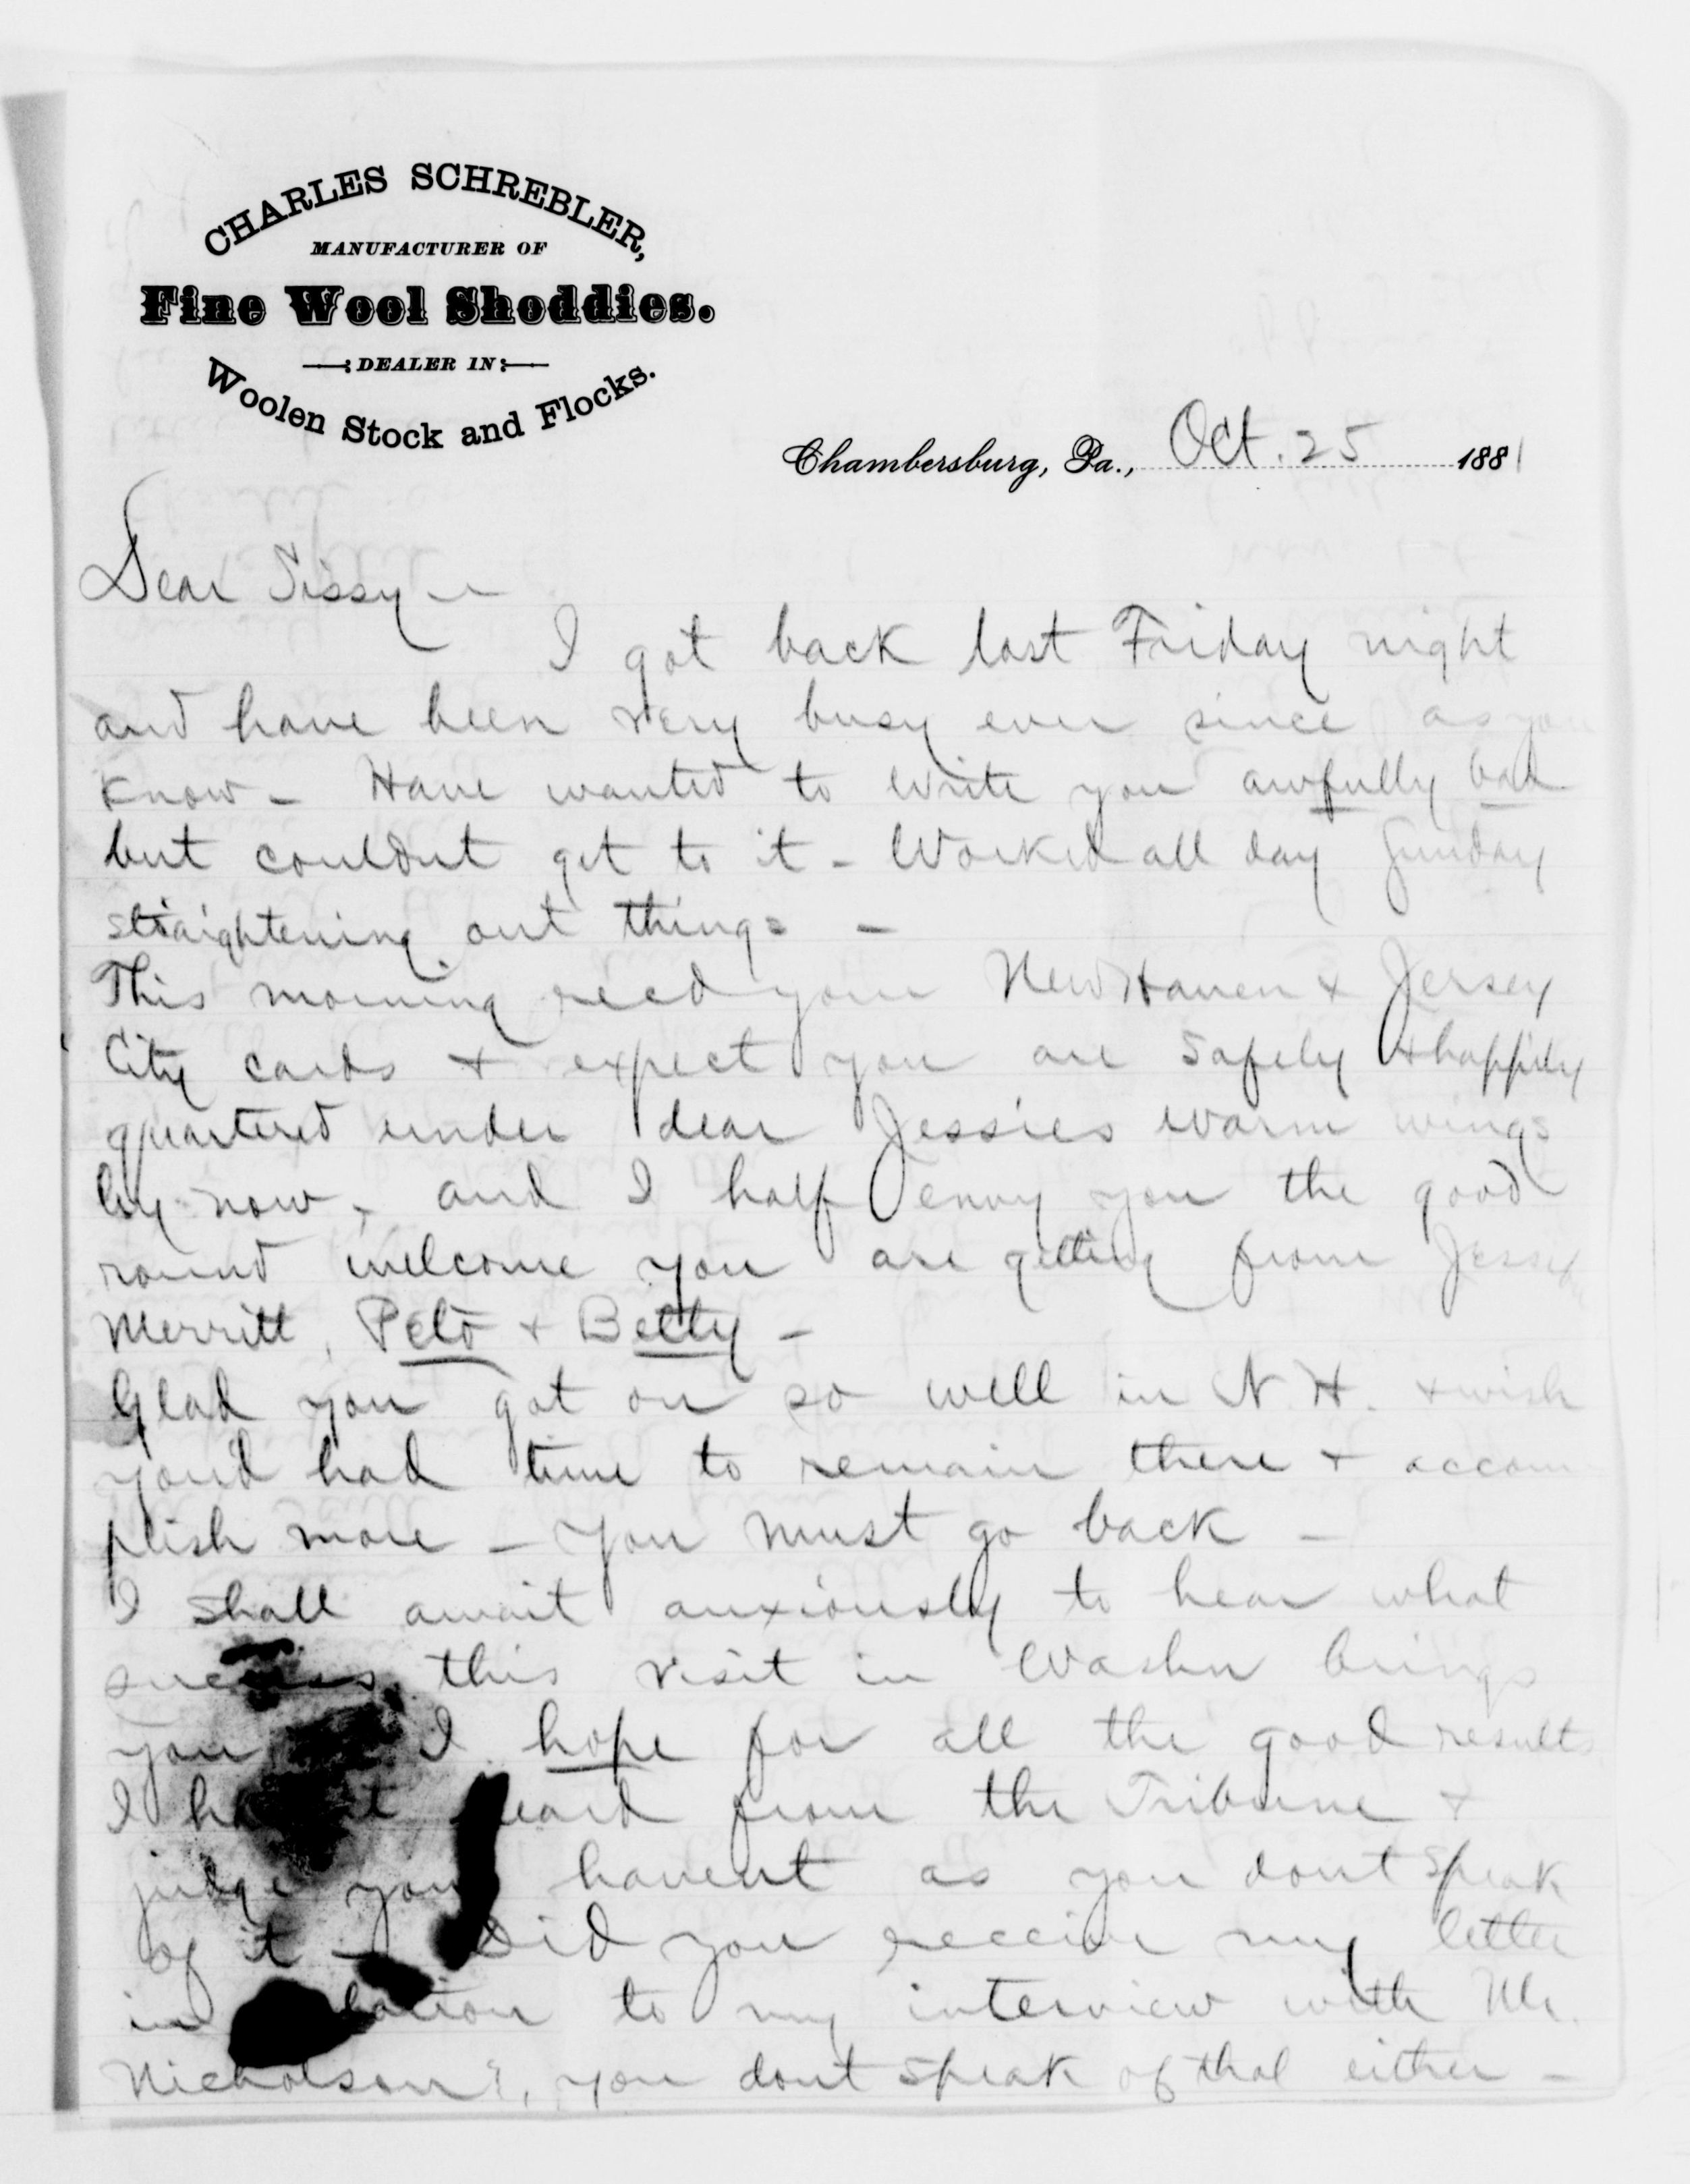 CHARLES SCHREBLER,
MANUFACTURER OF
Fine Wool Shoddies.
DEALER IN
Woolen Stock and Flocks.
Chambersburg, Pa., Oct. 25 1881
Dear Sissy -
I got back last Friday night
and have been very busy ever since as you
know - Have wanted to write you awfully bad
but couldnt get to it - Worked all day Sunday
straightening out things -
This morning recd your New Haven & Jersey
City cards & expect you are safely & happily
quartered under dear Jessies warm wings
by now, and I half envy you the good
round welcome you are getting from Jessie
Merritt, Peto & Betty -
Glad you got on so well in N. H. & wish
you'd had time to remain there & accom
plish more - You must go back -
I shall await anxiously to hear what
success this visit in Washn brings
you I hope for all the good results
I havent heard from the Tribune &
judge you havent as you dont speak
of it - Did you receive my letter
in relation to my interview with Mr.
Nicholson?, you dont speak of that either -